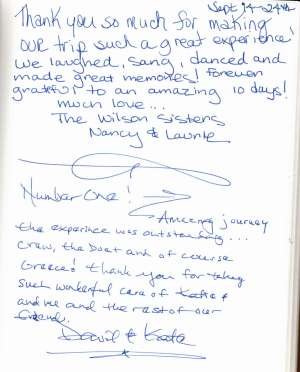 Sept 14-24th
Thank you so much for making
our trip such a great experience!
We laughed, sang, danced and
made great memories! Forever
grateful to an amazing 10 days!
much love...
The Wilson Sisters
Nancy & Laurie
Number One!
Amazing journey
the experience was outstanding...
Crew, the boat and of course
Greece! Thank you for taking
such wonderful care of Katie &
and me and the rest of our
friends.
David & Kate